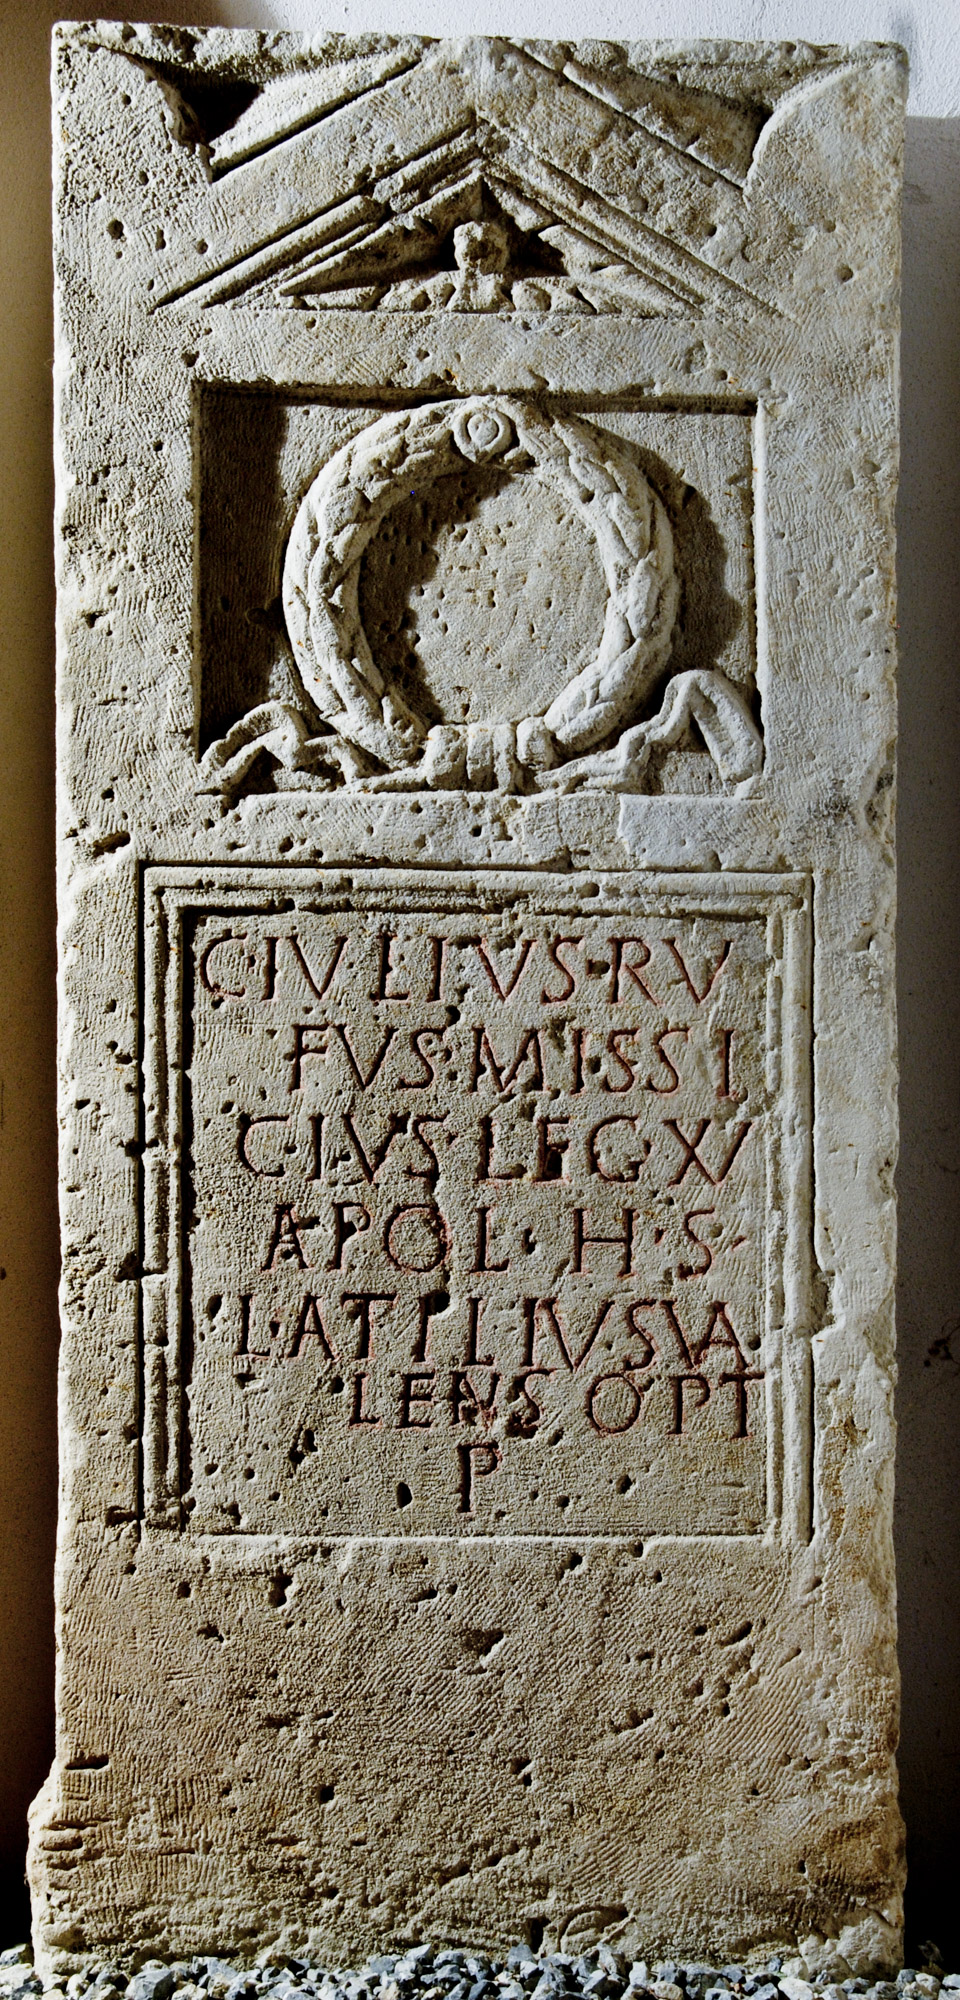 C·IVLIVS·RV
FVS·MISSI
CIVS·LEG·XV
APOL·H·S·
L·ATILIVS·VA
LENS OPT
P